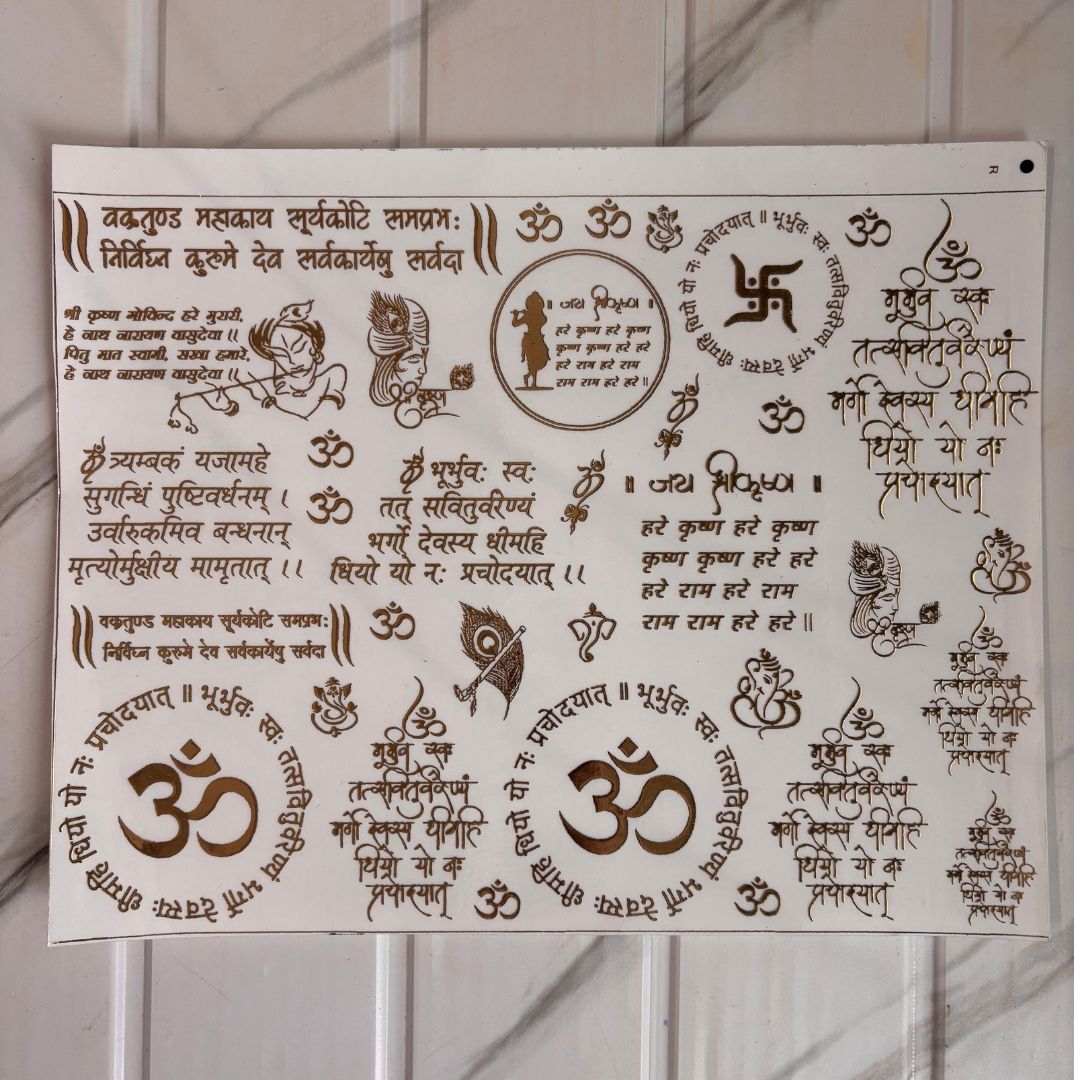 R
वक्रतुण्ड महाकाय सूर्यकोटि समप्रभः
निर्विघ्न कुरुमे देव सर्वकार्येषु सर्वदा
ॐ ॐ
ॐ
भूर्भुवः स्वः तत्सवितुवरिण्यं भर्गो देवस्यः धीमहि धियो यो नः प्रचोदयात् ॥
श्री कृष्ण गोविन्द हरे मुरारी,
हे नाथ नारायण वासुदेवा ।।
पितु मात स्वामी, सखा हमारे,
हे नाथ नारायण वासुदेवा ।।
श्री कृष्ण
॥ जय श्रीकृष्ण ॥
हरे कृष्ण हरे कृष्ण
कृष्ण कृष्ण हरे हरे
हरे राम हरे राम
राम राम हरे हरे ॥
ॐ
ॐ
भूर्भुव स्वः
तत्सवितुर्वरेण्यं
भर्गो देवस्य धीमहि
धियो यो नः
प्रचोदयात्
ॐ त्र्यम्बकं यजामहे
सुगन्धिं पुष्टिवर्धनम् ।
उर्वारुकमिव बन्धनान्
मृत्योर्मुक्षीय मामृतात् ।।
ॐ
ॐ
ॐ भूर्भुवः स्वः
तत् सवितुवरीण्यं
भर्गो देवस्य धीमहि
धियो यो नः प्रचोदयात् ।।
॥ जय श्रीकृष्ण ॥
हरे कृष्ण हरे कृष्ण
कृष्ण कृष्ण हरे हरे
हरे राम हरे राम
राम राम हरे हरे ॥
श्री कृष्ण
वक्रतुण्ड महाकाय सूर्यकोटि समप्रभः
निर्विघ्न कुरुमे देव सर्वकार्येषु सर्वदा
ॐ
ॐ
भूर्भुवः स्वः तत्सवितुवरिण्यं भर्गो देवस्यः धीमहि धियो यो नः प्रचोदयात् ॥
ॐ
भूर्भुव स्वः
तत्सवितुर्वरेण्यं
भर्गो देवस्य धीमहि
धियो यो नः
प्रचोदयात्
ॐ
ॐ
भूर्भुवः स्वः तत्सवितुवरिण्यं भर्गो देवस्यः धीमहि धियो यो नः प्रचोदयात् ॥
ॐ
भूर्भुव स्वः
तत्सवितुर्वरेण्यं
भर्गो देवस्य धीमहि
धियो यो नः
प्रचोदयात्
ॐ
ॐ
भूर्भुव स्वः
तत्सवितुर्वरेण्यं
भर्गो देवस्य धीमहि
धियो यो नः
प्रचोदयात्
ॐ
भूर्भुव स्वः
तत्सवितुर्वरेण्यं
भर्गो देवस्य धीमहि
धियो यो नः
प्रचोदयात्